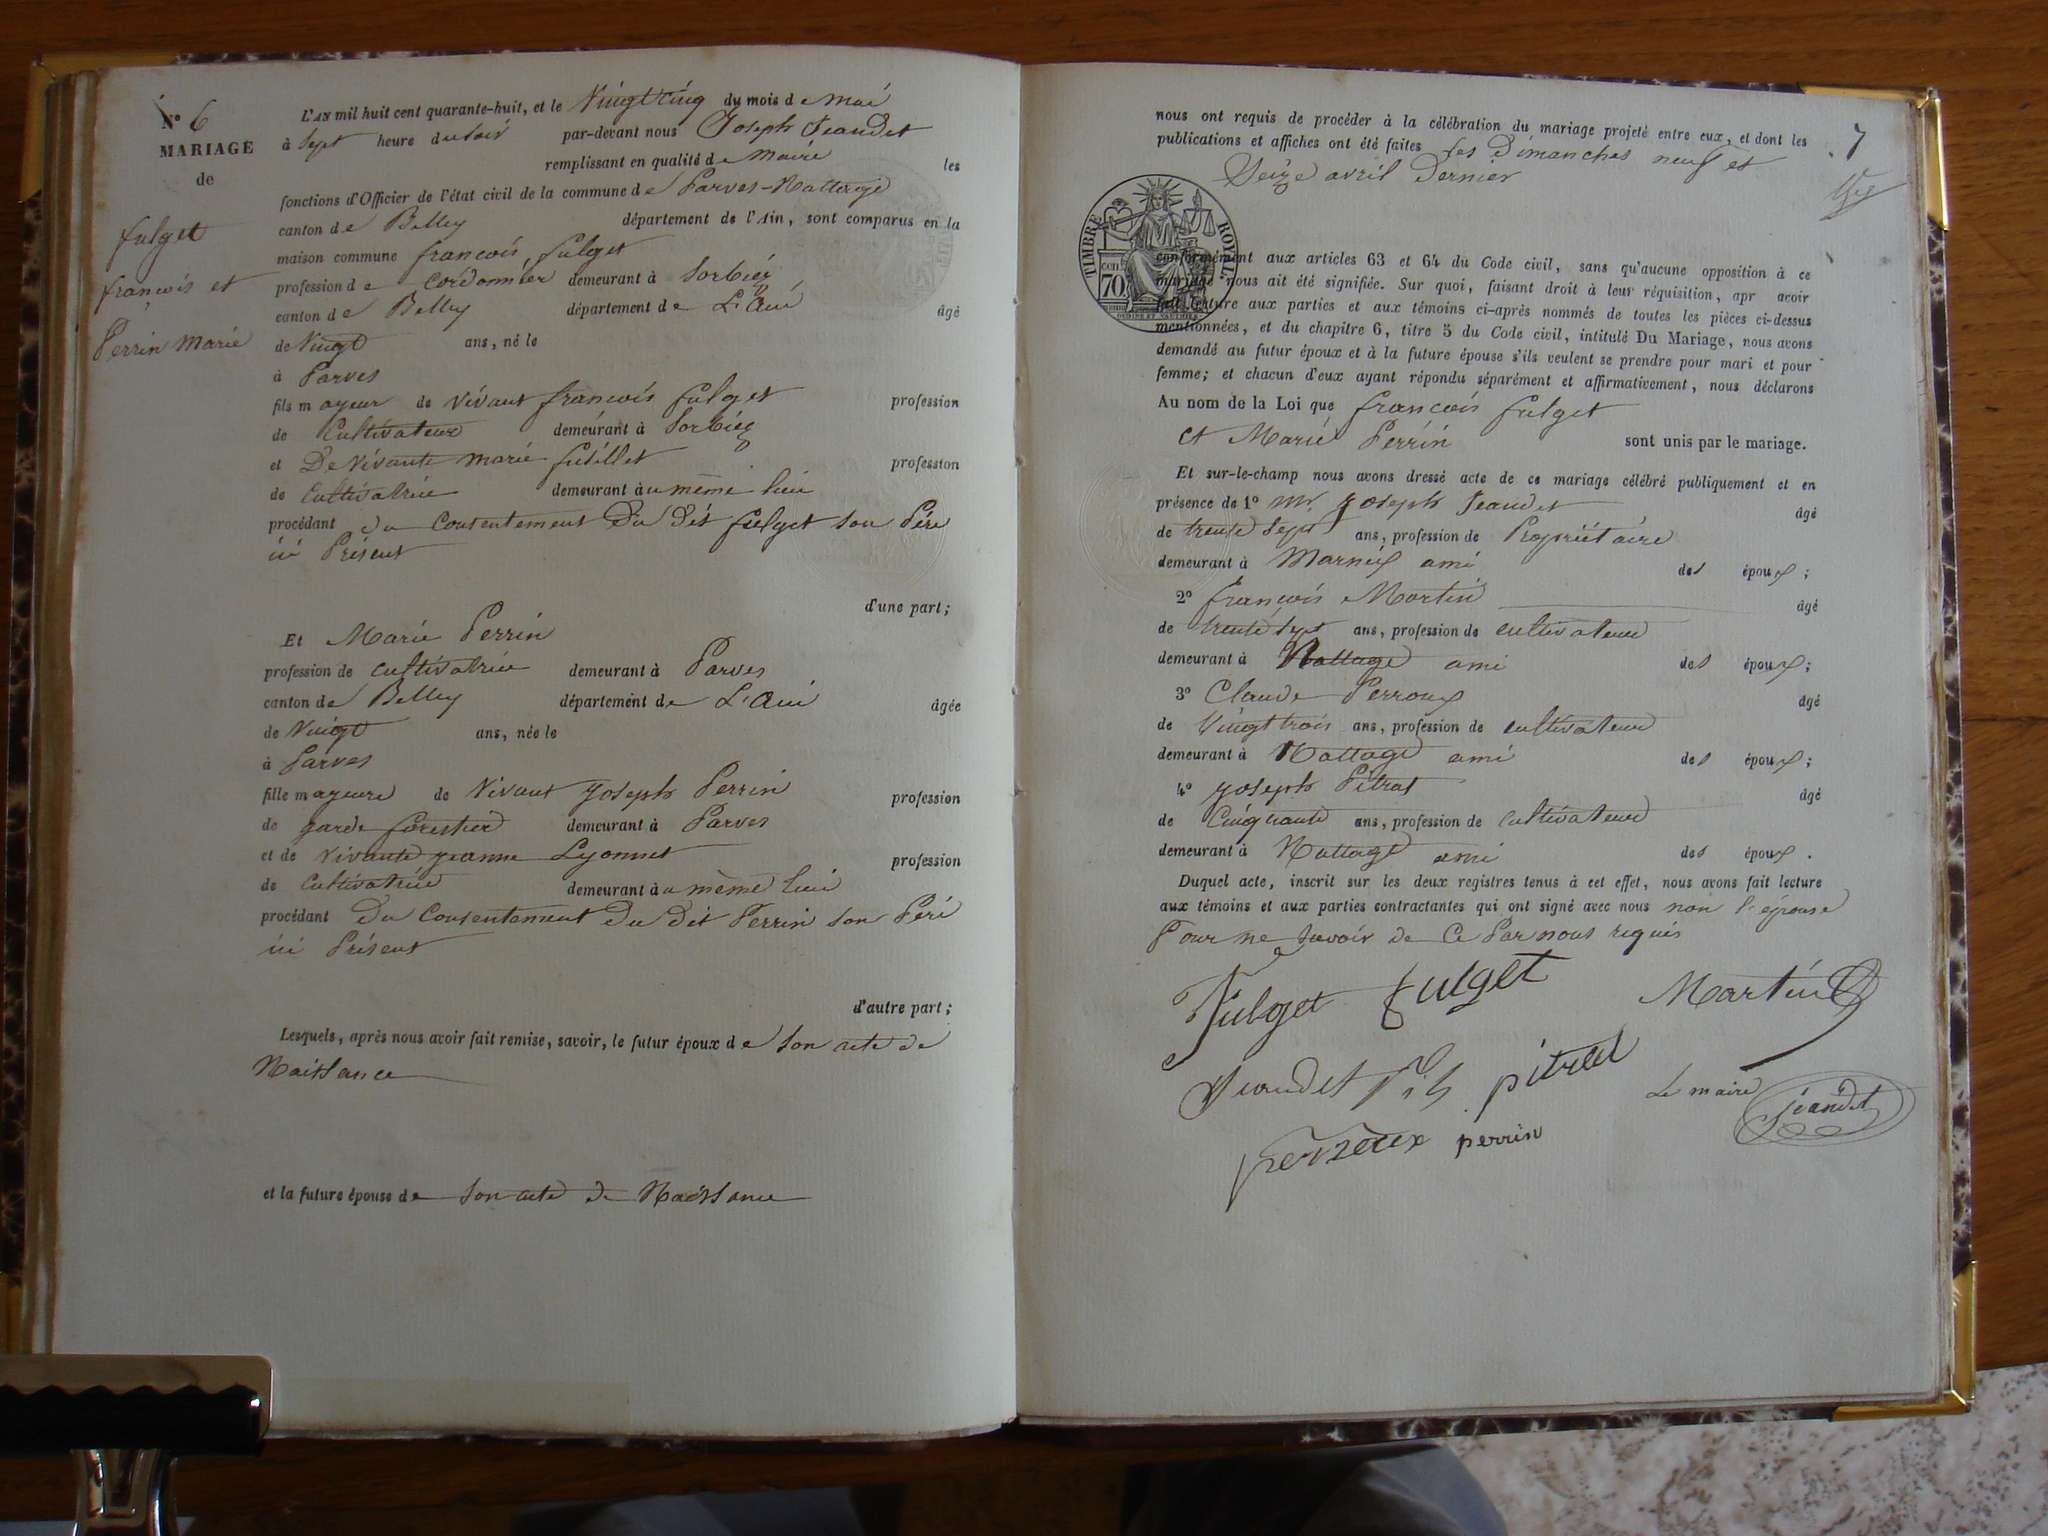 N° 6
MARIAGE
de
fulget
francois et
Perrin marie
L'AN mil huit cent quarante-huit, et le Vingt cinq du mois de mai
à Sept heure du soir par-devant nous Joseph Jeandet
remplissant en qualité de Maire les
fonctions d'Officier de l'état civil de la commune de Parves-Nattage
canton de Belley département de l'Ain, sont comparus en la
maison commune francois fulget
profession de Cordonnier demeurant à Sorbiez
canton de Belley département de L'Ain âgé
de Vingt ans, né le
à Parves
fils mayeur de Vivant francois fulget profession
de Cultivateur demeurant à Sorbiez
et De Vivante marie profession
de Cultivatrice demeurant au même lieu
procédant du Consentement Du Dit fulget Son Père
ici Présent
d'une part;
Et Marie Perrin
profession de cultivatrice demeurant à Parves
canton de Belley département de L'Ain âgée
de Vingt ans, née le
à Parves
fille mayeure de Vivant joseph Perrin profession
de garde forestier demeurant à Parves
et de Vivante jeanne Lyonnet profession
de Cultivatrice demeurant au même lieu
procédant Du Consentement Du Dit Perrin Son Père
ici Présent
d'autre part;
Lesquels, après nous avoir fait remise, savoir, le futur époux de Son acte de
Naissance
et la future épouse de Son acte de Naissance
7
nous ont requis de procéder à la célébration du mariage projeté entre eux, et dont les
publications et affiches ont été faites les Dimanches neuf et
Seize avril Dernier
TIMBRE ROYAL
CEN 70
conformément aux articles 63 et 64 du Code civil, sans qu'aucune opposition à ce
mariage nous ait été signifiée. Sur quoi, faisant droit à leur réquisition, apr avoir
fait lecture aux parties et aux témoins ci-après nommés de toutes les pièces ci-dessus
mentionnées, et du chapitre 6, titre 5 du Code civil, intitulé Du Mariage, nous avons
demandé au futur époux et à la future épouse s'ils veulent se prendre pour mari et pour
femme; et chacun d'eux ayant répondu séparément et affirmativement, nous déclarons
Au nom de la Loi que francois fulget
et Marie Perrin sont unis par le mariage.
Et sur-le-champ nous avons dressé acte de ce mariage célébré publiquement et en
présence de 1° Mr. joseph Jeandet âgé
de trente Sept ans, profession de Propriétaire
demeurant à ami des époux;
2° francois Martin âgé
de trente Sept ans, profession de cultivateur
demeurant à Nattage ami des époux;
3° Claude Perroux âgé
de Vingt trois ans, profession de cultivateur
demeurant à Nattage ami des époux;
4° joseph Pitrat âgé
de Cinquante ans, profession de cultivateur
demeurant à Nattage ami des époux.
Duquel acte, inscrit sur les deux registres tenus à cet effet, nous avons fait lecture
aux témoins et aux parties contractantes qui ont signé avec nous non l'épouse
Pour ne Savoir de Ce Par nous requis
Fulget fulget Martin
Jeandet fils pitrat Le maire Jeandet
perroux perrin